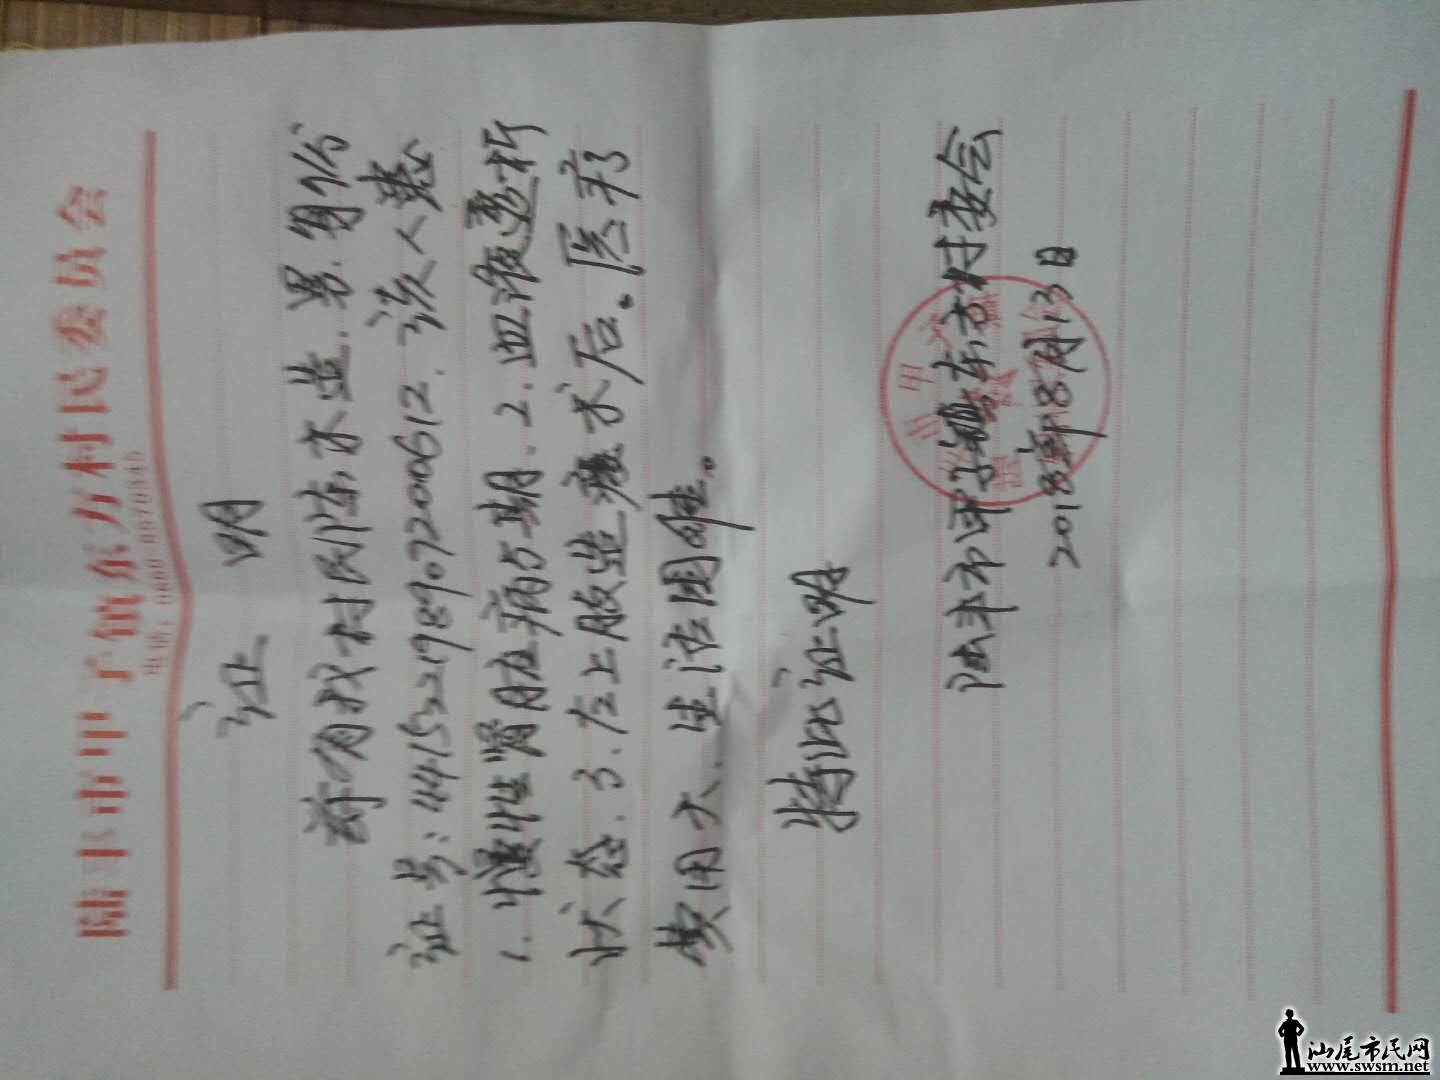 陆丰市甲子镇东方村民委员会
电话：0660-8670345
证 明
兹有我村民陈木益，男，身份
证号：441522198907200612，该人患
1.慢性肾脏病5期，2.血液透析
状态，3.左上肢造瘘术后。医疗
费用大、生活困难。
特此证明
陆丰市甲子镇东方村委会
2018年8月13日
汕尾市民网
www.swsm.net